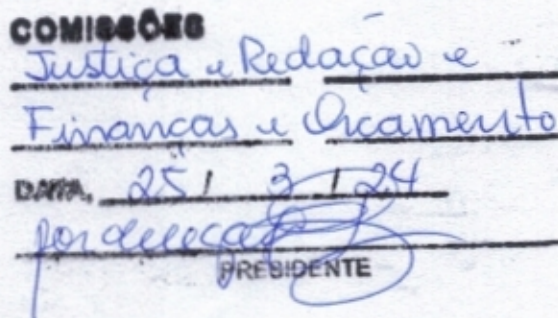 COMISSÕES
Justiça e Redação e
Finanças e Orçamento
DATA, 25 / 3 / 24
PRESIDENTE